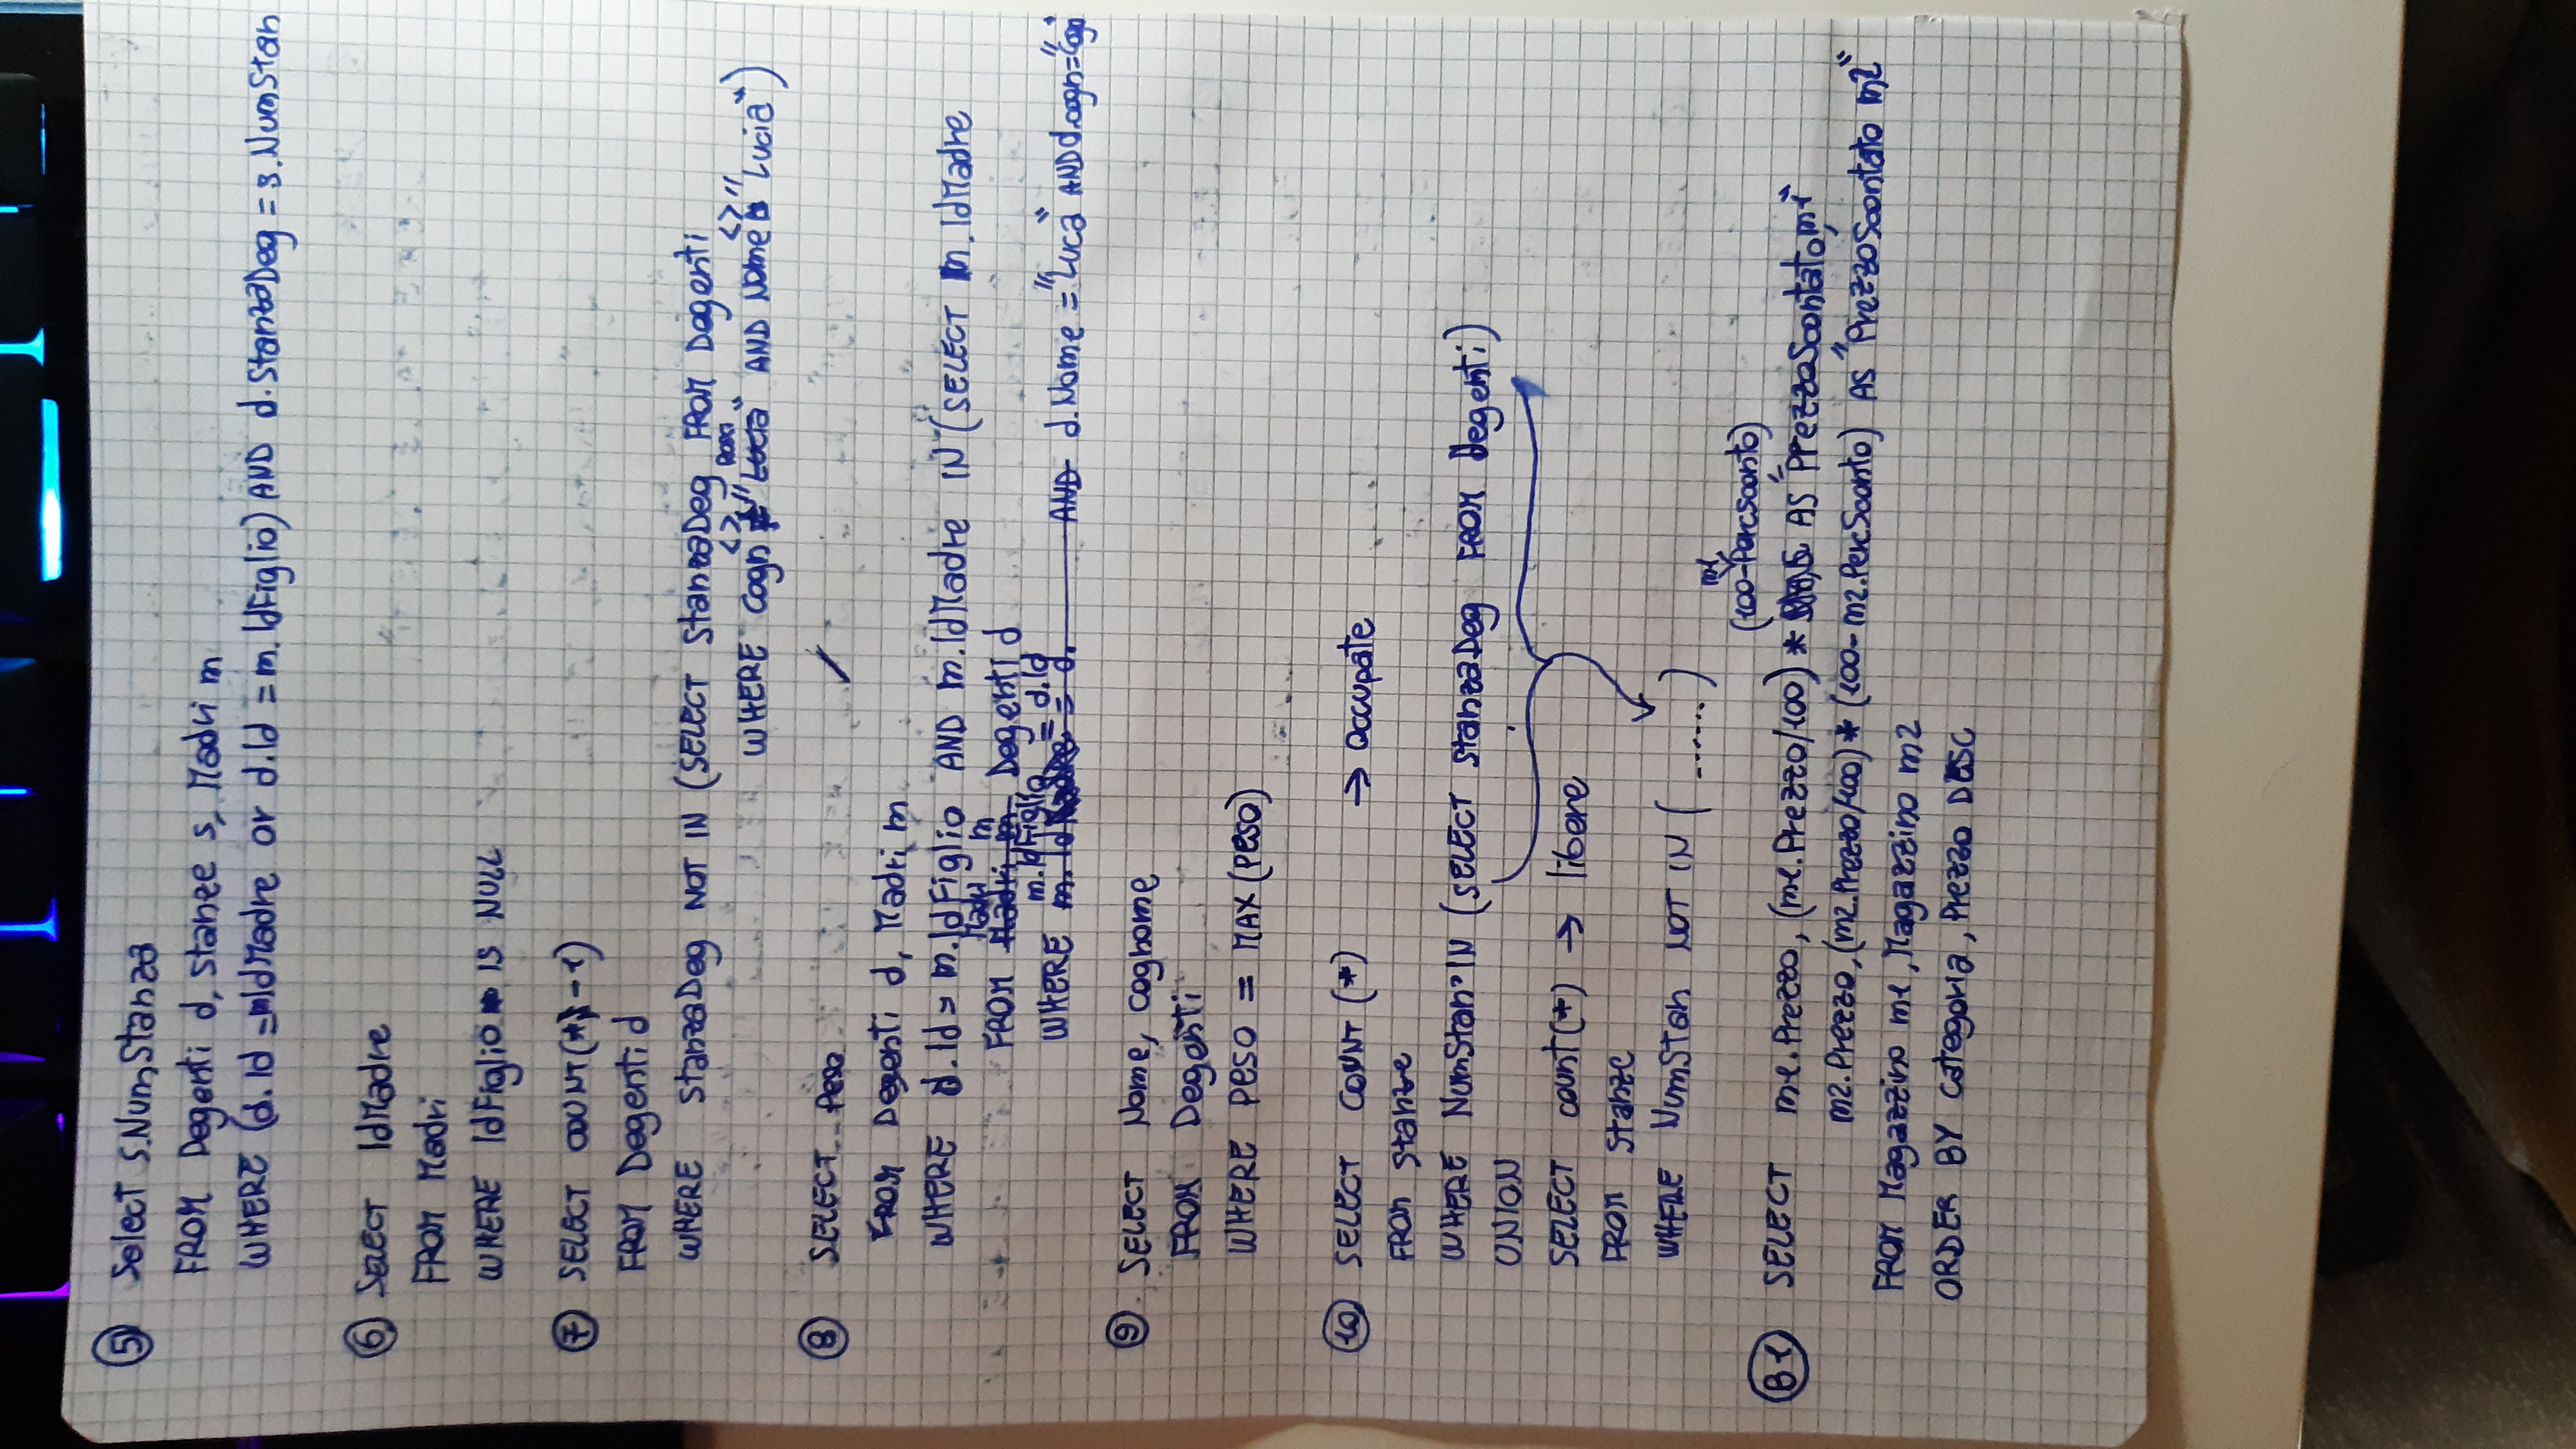 5 Select S.NumStanza
FROM Degenti d, Stanze s, Madri m
WHERE (d.Id = mIdMadre or d.Id = m.IdFiglio) AND d.StanzaDeg = s.NumStan
6 SELECT IdMadre
FROM Madri
WHERE IdFiglio IS NULL
7 SELECT COUNT(*)-1)
FROM Degenti d
WHERE StanzaDeg NOT IN (SELECT StanzaDeg FROM Degenti
WHERE Cogn <> "Rossi" AND Nome <> "Lucia")
8 SELECT Peso
FROM Degenti d, Madri m
WHERE d.Id = m.IdFiglio AND m.IdMadre IN (SELECT m.IdMadre
FROM Madri m Degenti d
WHERE m.IdFiglio = d.Id AND d.Nome = "Luca" AND d.cogn=
9 SELECT Nome, Cognome
FROM Degenti
WHERE PESO = MAX(PESO)
10 SELECT COUNT (*) → Occupate
FROM Stanze
WHERE NumStan IN (SELECT StanzaDeg FROM Degenti)
UNION
SELECT count(*) → libere
FROM Stanze
WHERE NumStan NOT IN (.......)
m1
(100-PercSconto)
B1 SELECT m1.Prezzo, (m1.Prezzo/100) * AS "PrezzoScontato m1",
m2.Prezzo, (m2.Prezzo/100) * (100-m2.PercSconto) AS "PrezzoScontato m2"
FROM Magazzino m1, Magazzino m2
ORDER BY Categoria, Prezzo DESC